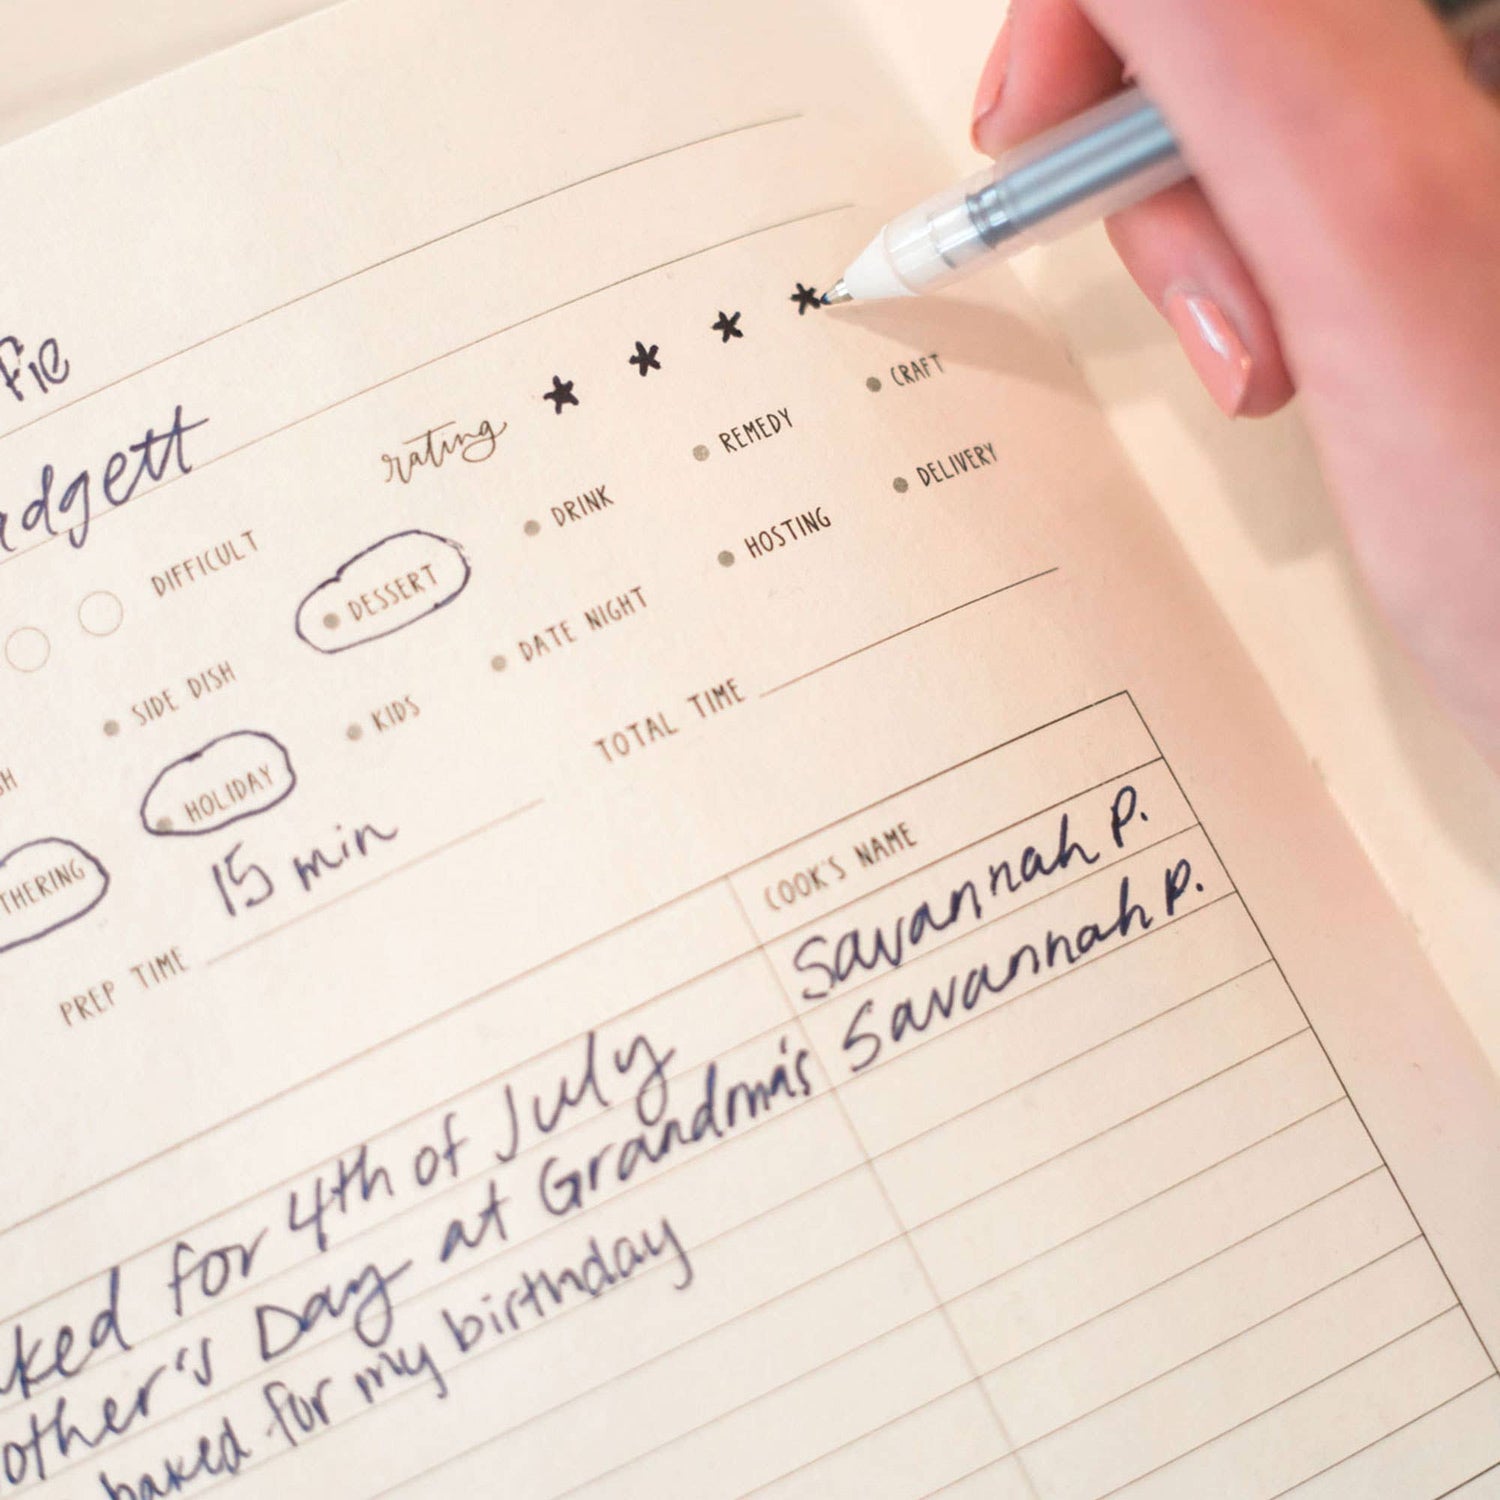 Pie
adgett
rating * * * *
DIFFICULT
DESSERT DRINK REMEDY CRAFT
SIDE DISH
HOLIDAY KIDS DATE NIGHT HOSTING DELIVERY
SH
THERING
PREP TIME 15 min TOTAL TIME
COOK'S NAME
ked for 4th of July Savannah P.
other's Day at Grandma's Savannah P.
baked for my birthday